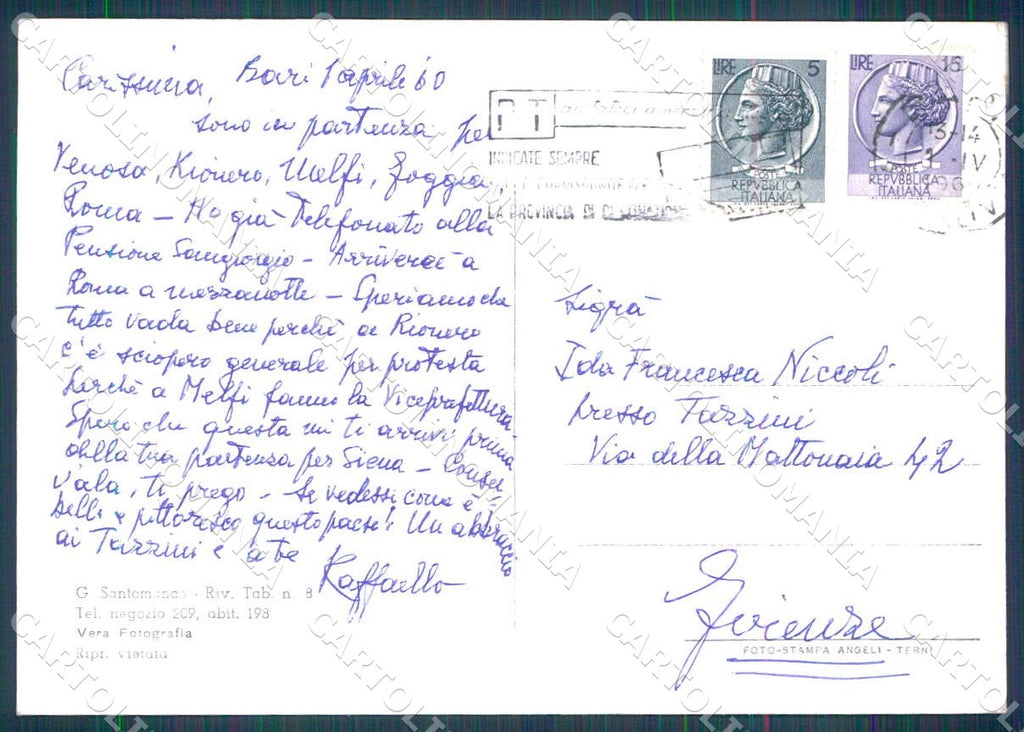 Carissima, Bari 1 aprile 60
sono in partenza per
Venosa, Rionero, Melfi, Foggia
Roma - Ho già telefonato alla
Pensione Sangiorgio - Arriverò a
Roma a mezzanotte - Speriamo che
tutto vada bene perchè a Rionero
c'è sciopero generale per protesta
perchè a Melfi fanno la Viceprefettura
Spero che questa mi ti arrivi prima
della tua partenza per Siena - Conser
vala, ti prego - Se vedessi come è
bello e pittoresco questo paese! Un abbraccio
ai Tazzini e a te
Raffaello
G. Santom - Riv. Tab. n. 8
Tel. negozio 209, abit. 198
Vera Fotografia
Ripr. vietata
LIRE 5
POSTE
REPVBBLICA
ITALIANA
LIRE 15
POSTE
REPVBBLICA
ITALIANA
PT
INDICATE SEMPRE
LA PROVINCIA DI DESTINAZIONE
13-14
1-IV
Sig.ra
Ida Francesca Niccoli
presso Tazzini
Via della Mattonaia 42
Firenze
FOTO-STAMPA ANGELI - TERNI
CARTOLINOMANIA